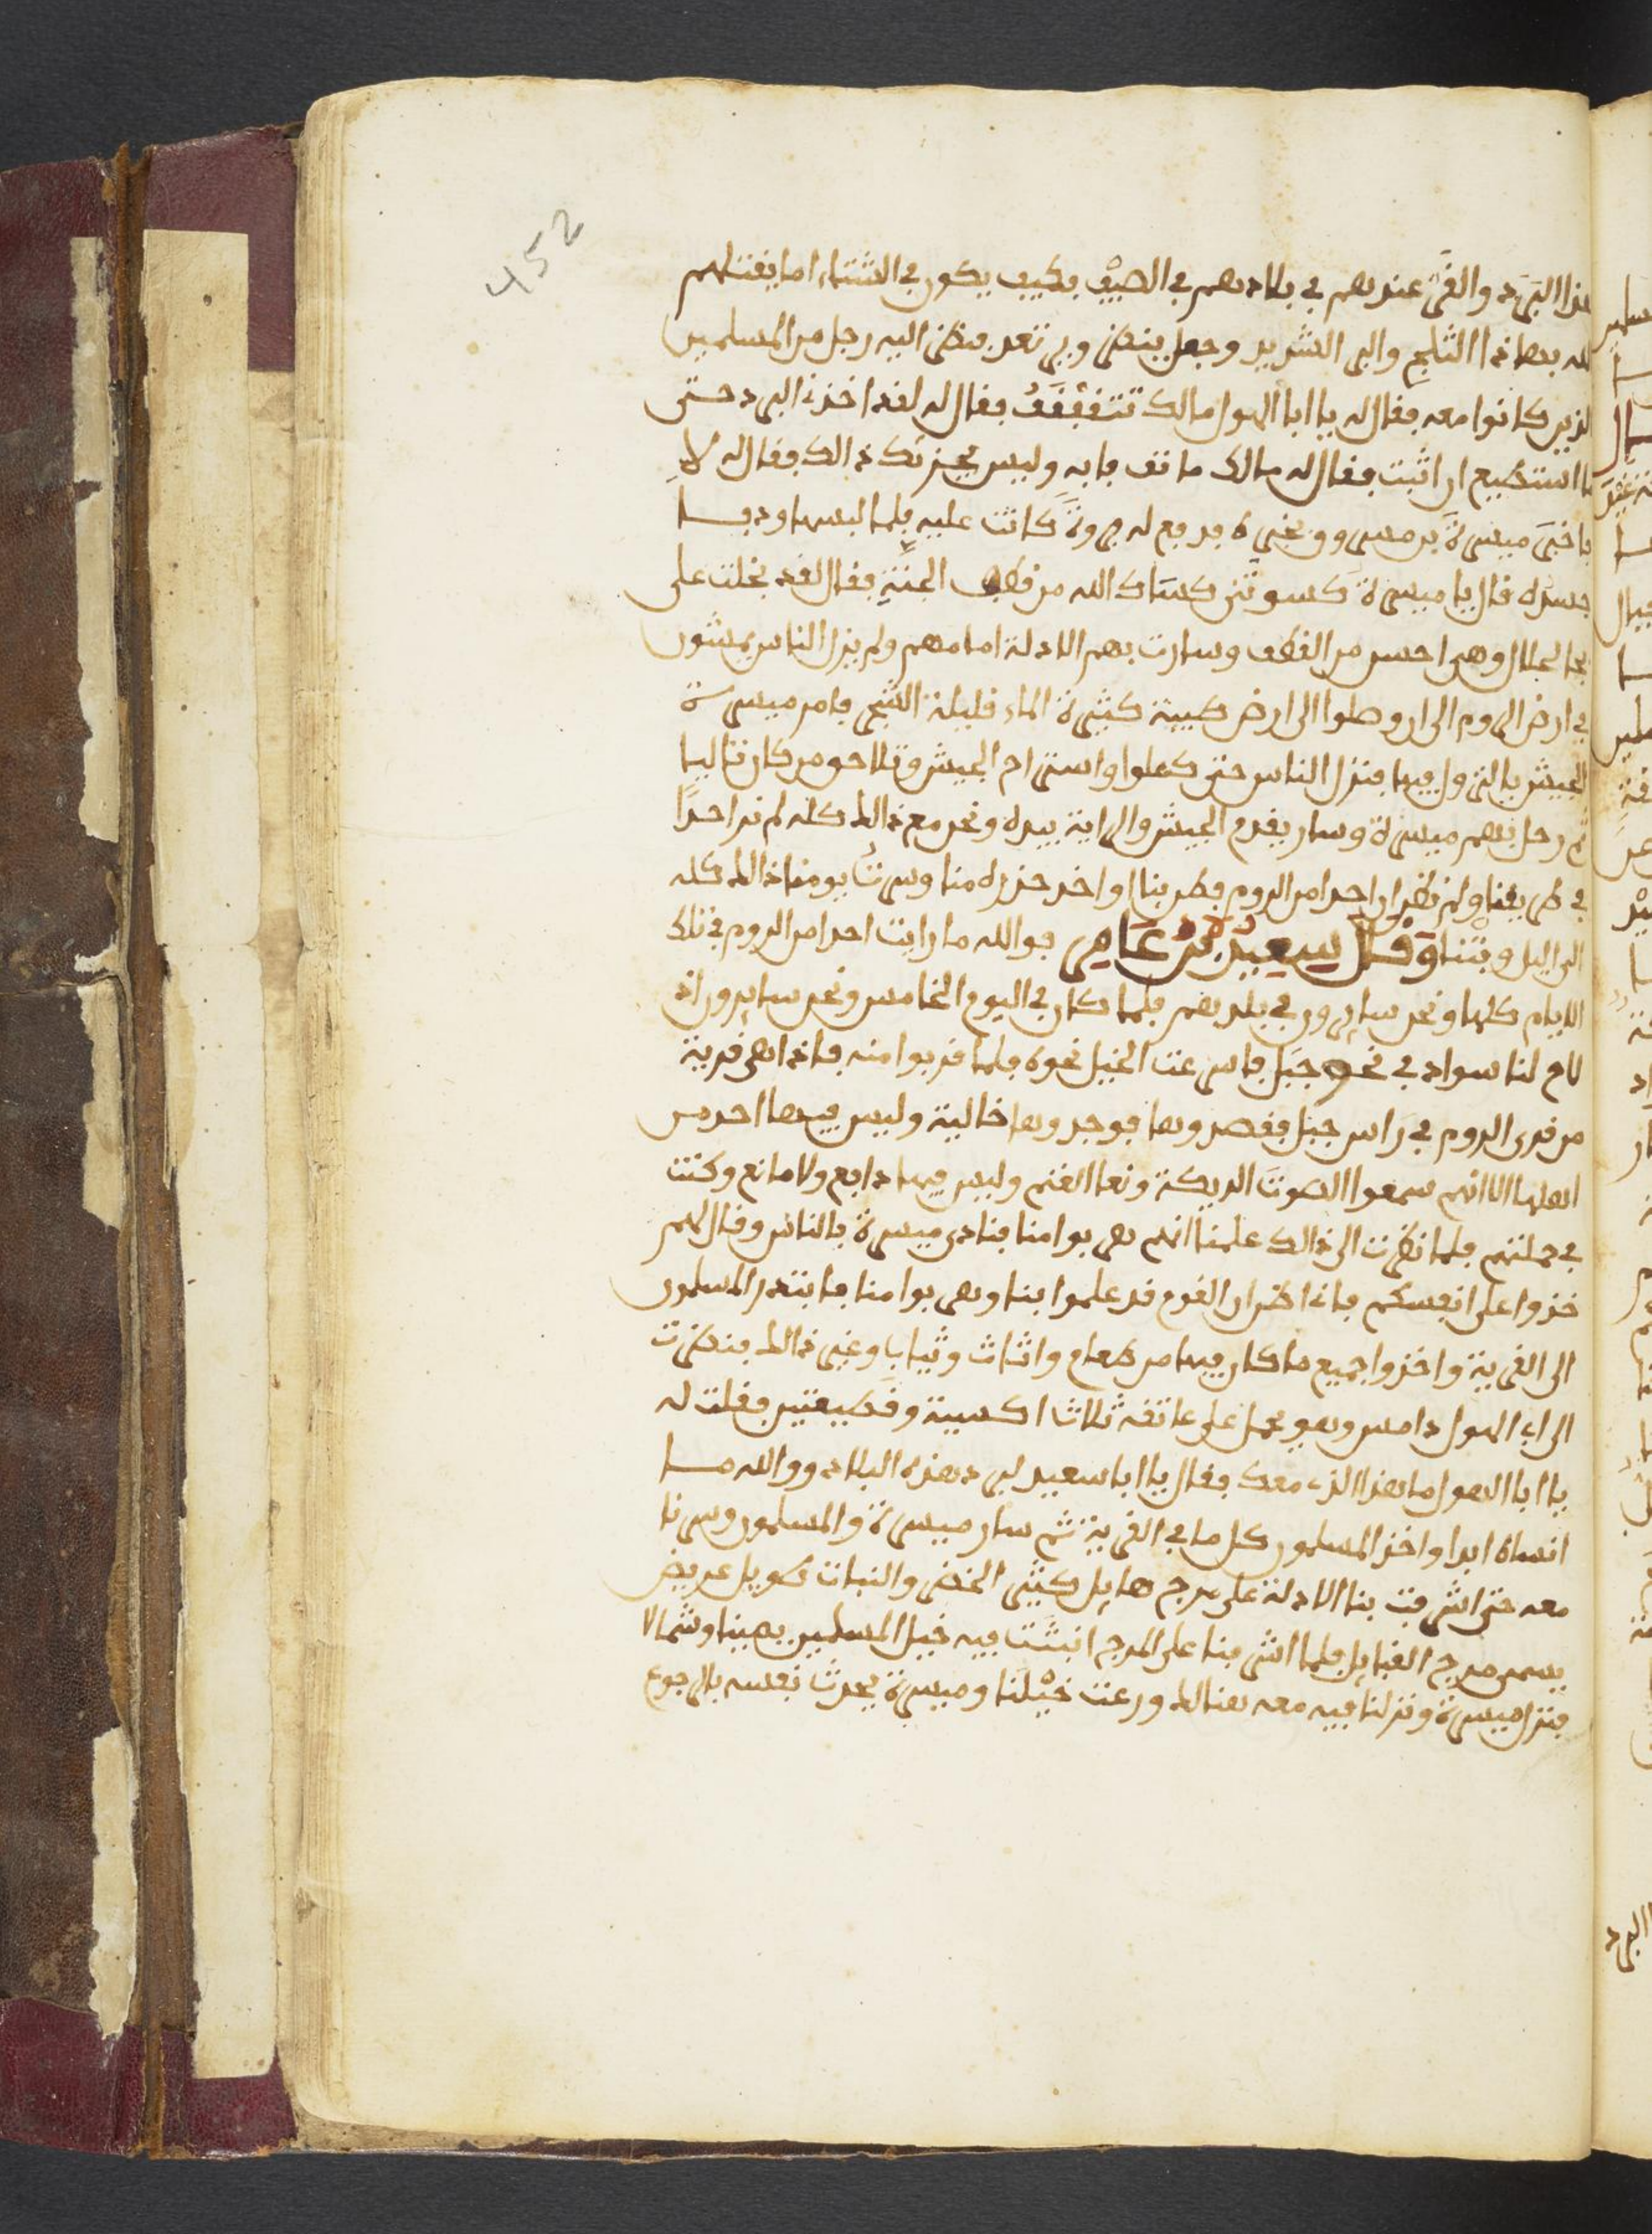 452
هذا البَرد والقُر عندهم في بلادهم في الصيْف فكيف يكون في الشتاء اما يقتلهم
الله بهاذا الثلج والبرد الشديد وجعل ينظر ويرتعد فنظر اليه رجل من المسلمين
الذين كانوا معه فقال له يا ابا الهول مالك تتقفْقَفُ فقال له لقد اخذني البرد حتى
ما استطيع ان اثبت فقال له مالك ما تتـ فابه وليس يجزئك ذالك فقال له لا
فاخبَر ميسرةَ بن مسروق بخبره فدفع له فروةً كانت عليه فلما لبسها ودفـا
جسده قال يا ميسرة كسوتني كساك الله من قطف الجنّة فقال لقد بخلت علي
بالحلل وهي احسن من القطف وسارت بهم الادلة امامهم ولم يزل الناس يمشون
في ارض الروم الى ان وصلوا الى ارض طيبة كثيرة الماء قليلة الشجر فامر ميسرة
الجيش بالنزول فيها فنزل الناس حتى طعلوا واستراح الجيش وتلاحق من كان تاليا
ثم رحل بهم ميسرة وسار يقدم الجيش والراية بيده ونحن مع ذالك كله لم نر احدًا
في طريقنا ولم نظن ان احدا من الروم فطن بنا او اخذ حذره منا وسرنا يومنا ذالك كله
الى اليل وبتنا وَقَالَ سَعِيدُ بْنُ عَامِرٍ فوالله ما رايت احدا من الروم في تلك
الايام كلها ونحن سايرون في بلدهم فلما كان في اليوم الخامس ونحن سايرون اذ
لاح لنا سواد في نحو جبَل فاسرعت الخيل نحوه فلما قربوا منه فاذا هي قرية
من قرى الروم في راس جبل فقصدوها فوجدوها خالية وليس فيها احد من
اهلها الا انهم سمعوا الصوتَ الديكة ونعا الغنم وليس فيها دافع ولا مانع وكنت
في جملتهم فلما نظرت الى ذالك علمنا انهم هربوا منا فنادى ميسرة بالناس وقال لهم
خذوا على انفسكم فانا اظن ان القوم قد علموا بنا وهربوا منا فابتدر المسلمون
الى القرية واخذوا جميع ما كان فيها من طعام واثاث وثيابا وغير ذالك فنظرت
الى ابي الهول دامس وهو يحمل على عاتقه ثلاث اكسية وقَطيفتين فقلت له
يا ابا الهول ما هذا الذي معك فقال يا ابا سعيد لبرد هذه البلاد ووالله مـا
انساه ابدا واخذ المسلمون كل ما في القرية ثم سار ميسرة والمسلمون وسرنا
معه حتى اشرفت بنا الادلة على مرج هايل كثير الخضر والنبات طويل عريض
يسمى مرج القبايل فلما اشرفنا على المرج انبثت فيه خيل المسلمين يمينا وشمالا
فنزل ميسرة ونزلنا فيه معه هنالك ورعت خيْلنا وميسرة يحدث نفسه بالرجوع